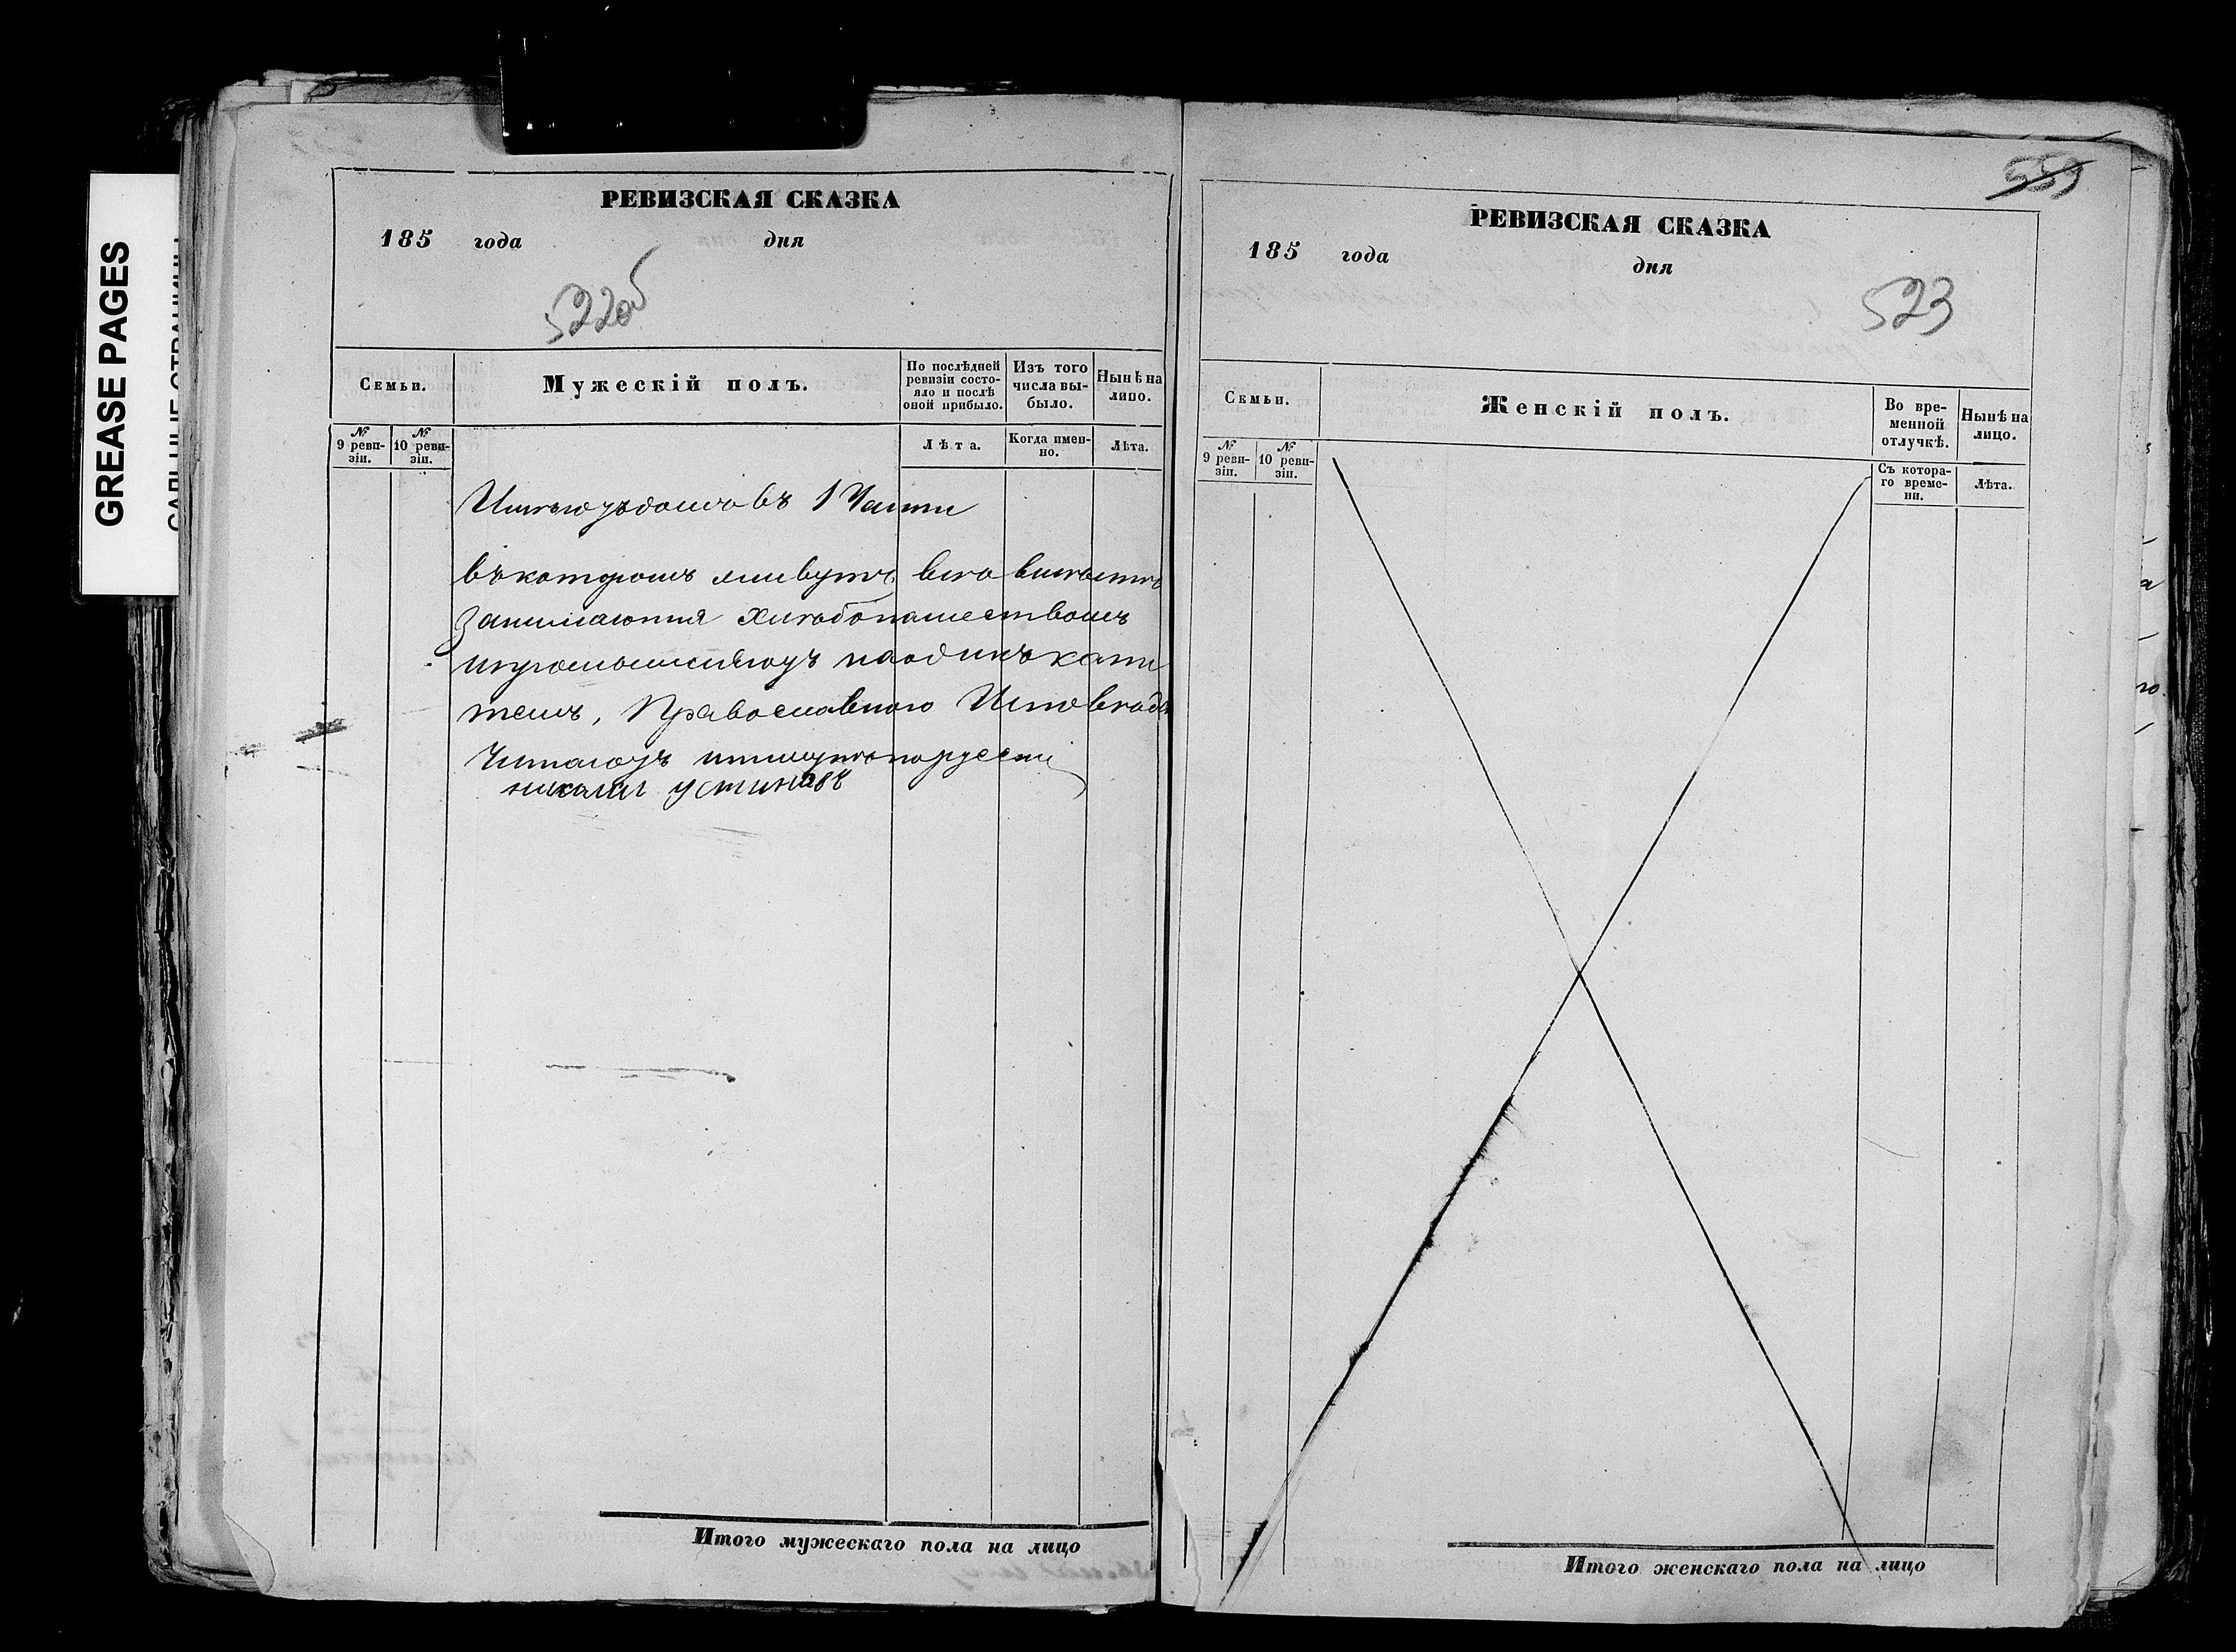 GREASE PAGES
РЕВИЗСКАЯ СКАЗКА
185 года дня
522об
Семьи.
Мужескій полъ.
По послѣдней ревизіи состояло и послѣ оной прибыло.
Изъ того числа выбыло.
Нынѣ на лицо.
№ 9 ревизіи.
№ 10 ревизіи.
Лѣта.
Когда именно.
Лѣта.
въ 1 Части
въкоторомъ живутъ всѣ вмѣстѣ
Занимаются Хлѣбопашествомъ
наодинъ капи
Православного Исповѣд
Читаютъ ипишутъ порусски
николай устиновъ
Итого мужескаго пола на лицо
559
РЕВИЗСКАЯ СКАЗКА
185 года дня
523
Семьи.
Женскій полъ.
Во временной отлучкѣ.
Нынѣ на лицо.
№ 9 ревизіи.
№ 10 ревизіи.
Съ котораго времени.
Лѣта.
Итого женскаго пола на лицо